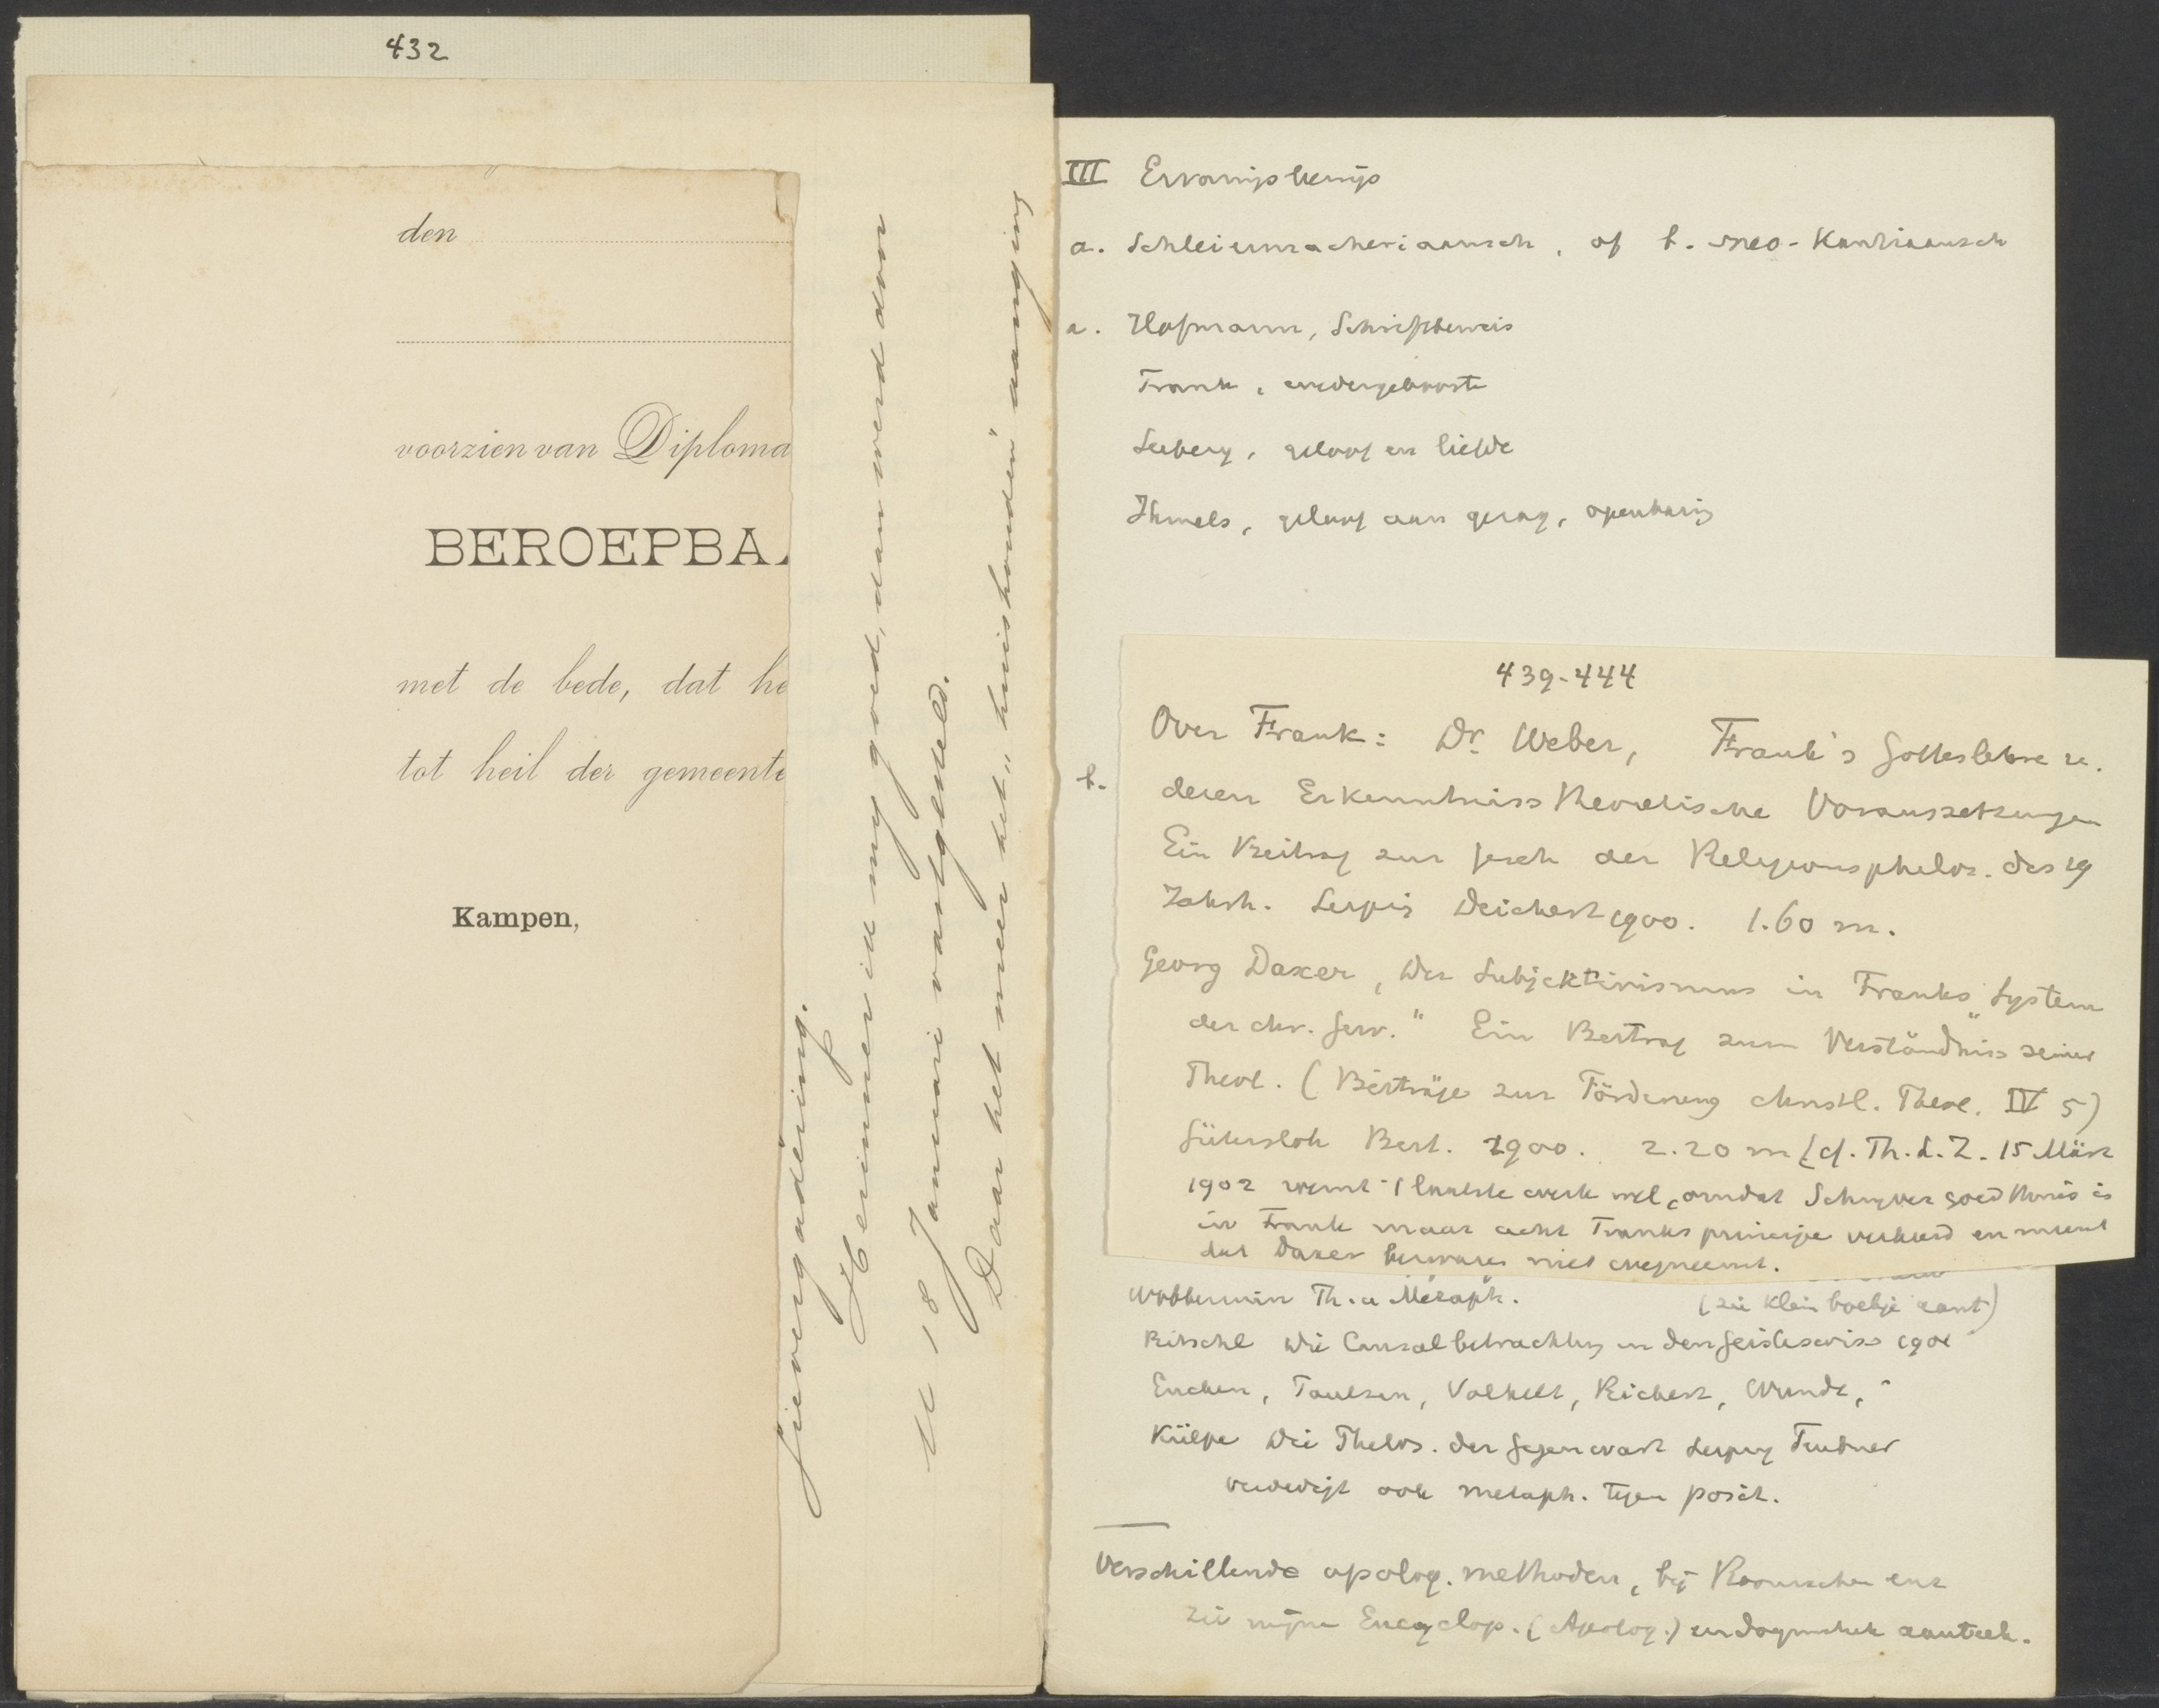 432
den
voorzien van Diploma
BEROEPBA
met de bede, dat he
tot heil der gemeente
Kampen,
vergadering.
Herinner ik my goed, dan werd door
U 18 Januari vastgesteld.
Daar het meer het „huishouden" aanging
III Ervaringsbewijs
a. Schleiermacheriaansch, of b. neo-Kantiaansch
a. Hofmann, Schriftbeweis
Frank, wedergeboorte
Seeberg, geloof en liefde
Ihmels, geloof aan getuig, openbaring
b.
439-444
Over Frank: Dr. Weber, Frank's Gotteslehre u.
deren Erkenntnisstheoretische Voraussetzungen
Ein Beitrag zur Gesch der Religionsphilos. des 19
Jahrh. Leipzig Deichert 1900. 1.60 m.
Georg Daxer, Der Subjektivismus in Franks „System
der chr. Gew." Ein Beitrag zum Verständniss seiner
Theol. (Beiträge zur Förderung christl. Theol. IV 5)
Gütersloh Bert. 1900. 2.20 m (cf. Th. L. Z. 15 März
1902 roemt 't laatste werk wel, omdat Schrijver goed thuis is
in Frank maar acht Franks principe verkeerd en meent
dat Daxer bezwaren niet wegneemt.
Wobbermin Th. u Metaph. (zie klein boekje aant)
Ritschl Die Causalbetrachtung in den Geisteswiss 1901
Eucken, Paulsen, Volkelt, Rickert, Wundt,
Külpe Die Philos. der Gegenwart Leipzig Teubner
verdedigt ook metaph. tegen posit.
Verschillende apolog. methoden, bij Roomschen enz
zie mijne Encyclop. (Apolog.) en dogmatiek aanteek.